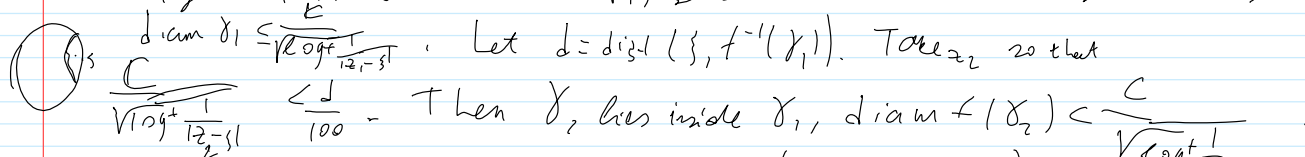 diam γ₁ ≤ C/√(log⁺ 1/|z₁-ξ|) . Let d = dist(ξ, f⁻¹(γ₁)). Take z₂ so that
C/√(log⁺ 1/|z₂-ξ|) < d/100 . Then γ₂ lies inside γ₁, diam f(γ₂) < C/√(log⁺ 1